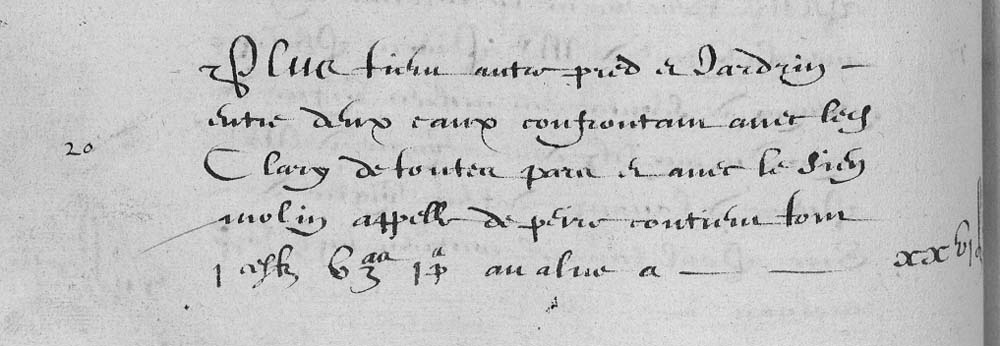 Plus tient autre pred et Jardrin –
entre deux eaux confrontant avec led
20 Clary de toutes pars et avec le sien
molin appelle de peire contient tout
1 6 1 avalue a — — xxvi